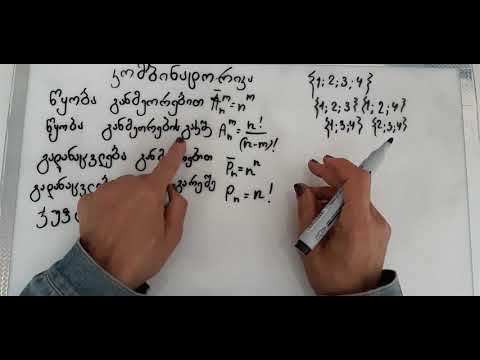 კომბინატორიკა
წყობა განმეორებით Ā_n^m = n^m
წყობა განმეორების გარეშ A_n^m = n!/(n-m)!
გადანაცვლება განმეორებით P̄_n = n^n
გადანაცვლება გარეშე P_n = n!
{1; 2; 3; 4}
{1; 2; 3} {1; 2; 4}
{1; 3; 4} {2; 3; 4}